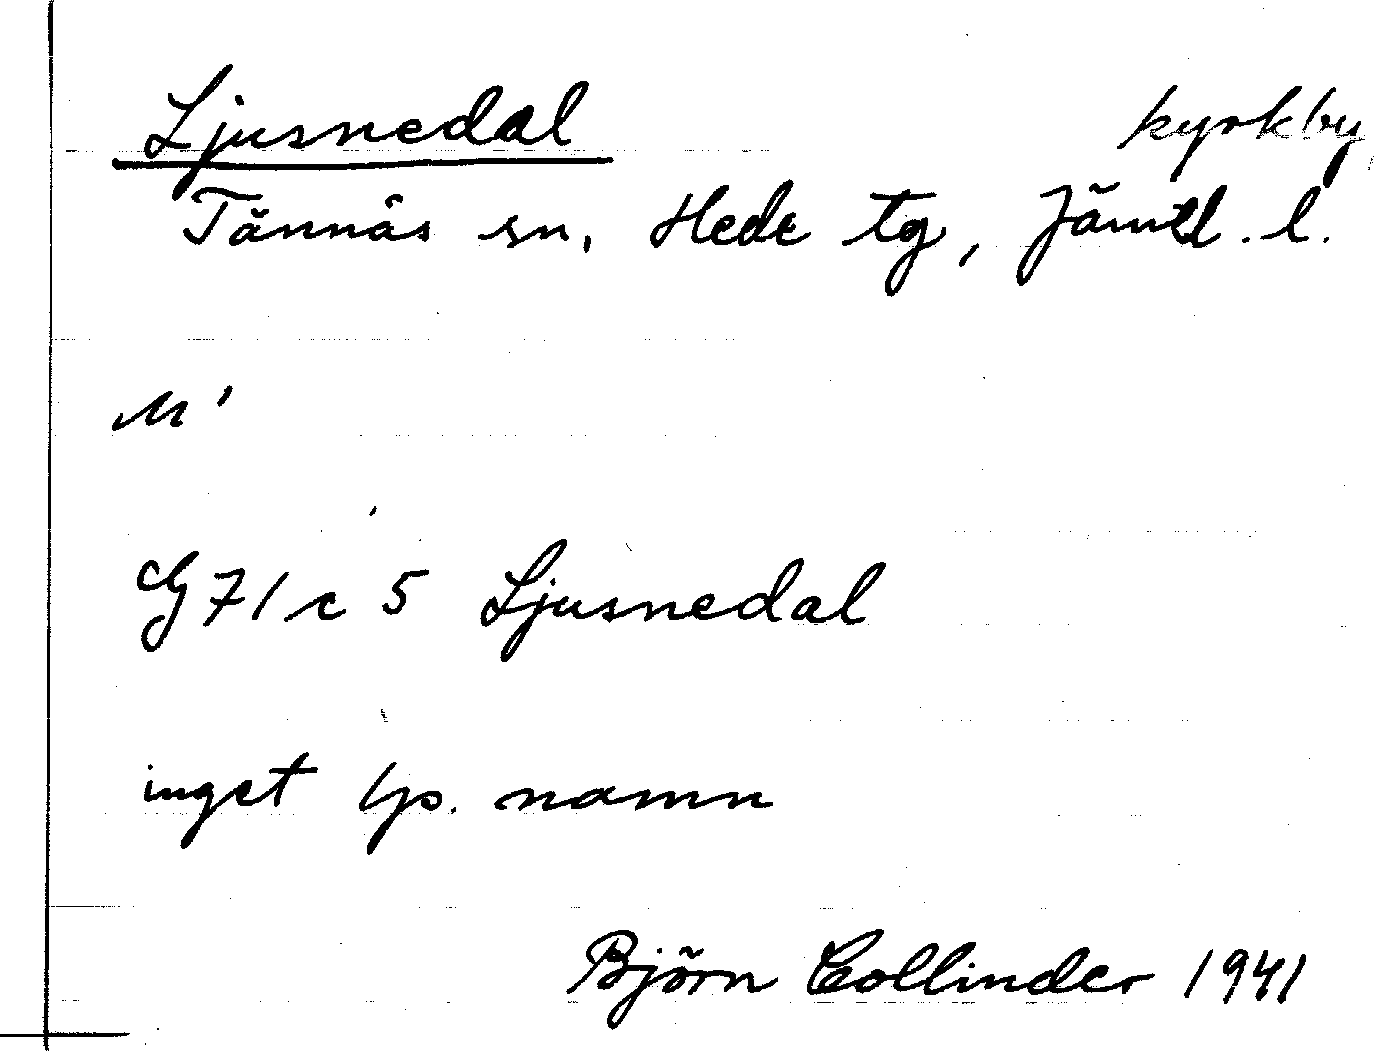 Ljusnedal kyrkby
Tännäs sn, Hede tg, Jämtl. l.
M'
G 71 c 5 Ljusnedal
inget lp. namn
Björn Collinder 1941